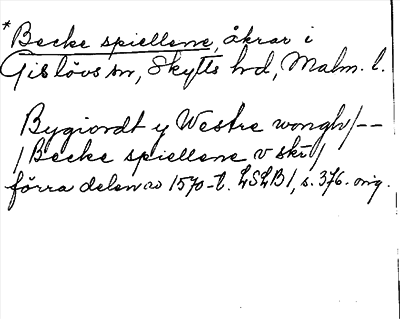 * Becke spiellene, åkrar i
Gislövs sn, Skytts hd, Malm. l.
Bygiordt y Westre wongh/--
/Becke spiellene v skr/
förra delen av 1570-t. LSLB1, s. 376. orig.